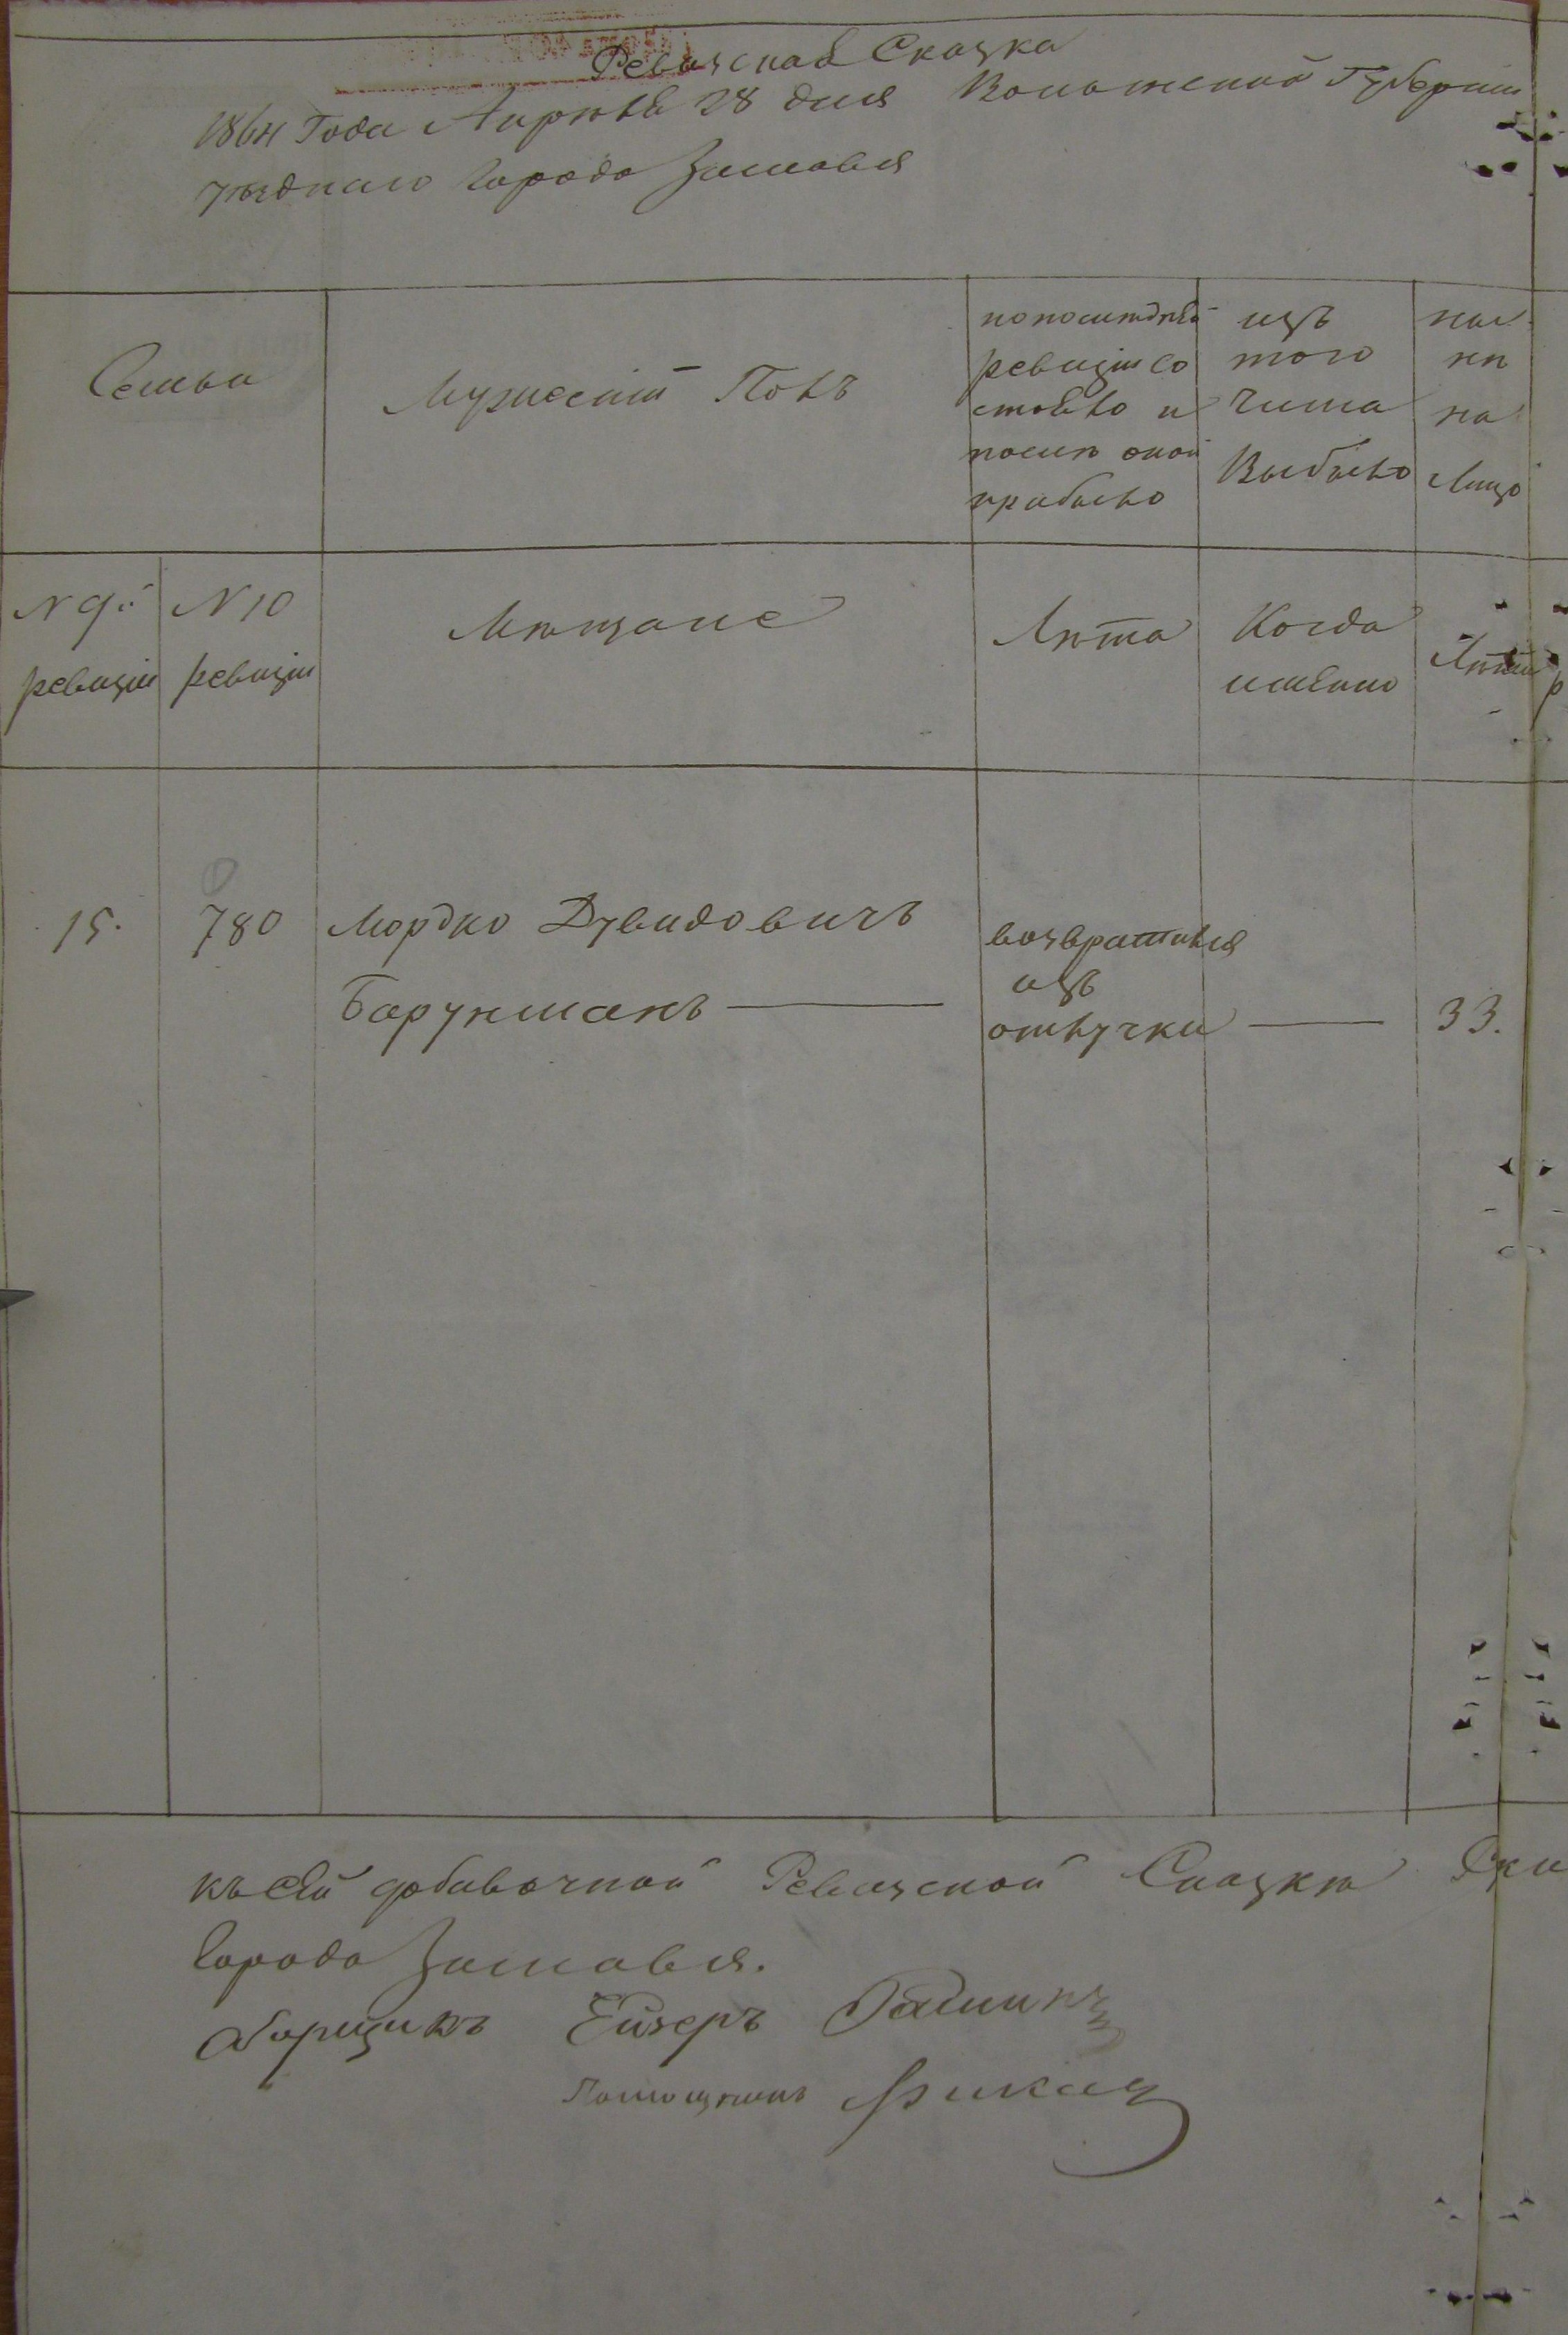 Ревизская Сказка
1864 Года Апреля 28 дня Волынской Губернии
уезднаго Города Заславля
Семьи
Мужеский Полъ
по последней
ревизіи со
стояло и
после оной
прибыло
изъ
того
числа
Выбыло
ны
не
на
Лицо
N 9й
ревизіи
N 10
ревизіи
Мещане
Лѣта
Когда
именно
Лѣта
15.
780
Мордко Дувидовичъ
Барунманъ
возвратился
изъ
отлучки
33.
къ сей добавочной Ревизской Сказкѣ
Города Заславля.
Сборщикъ Ейзеръ
Помощникъ